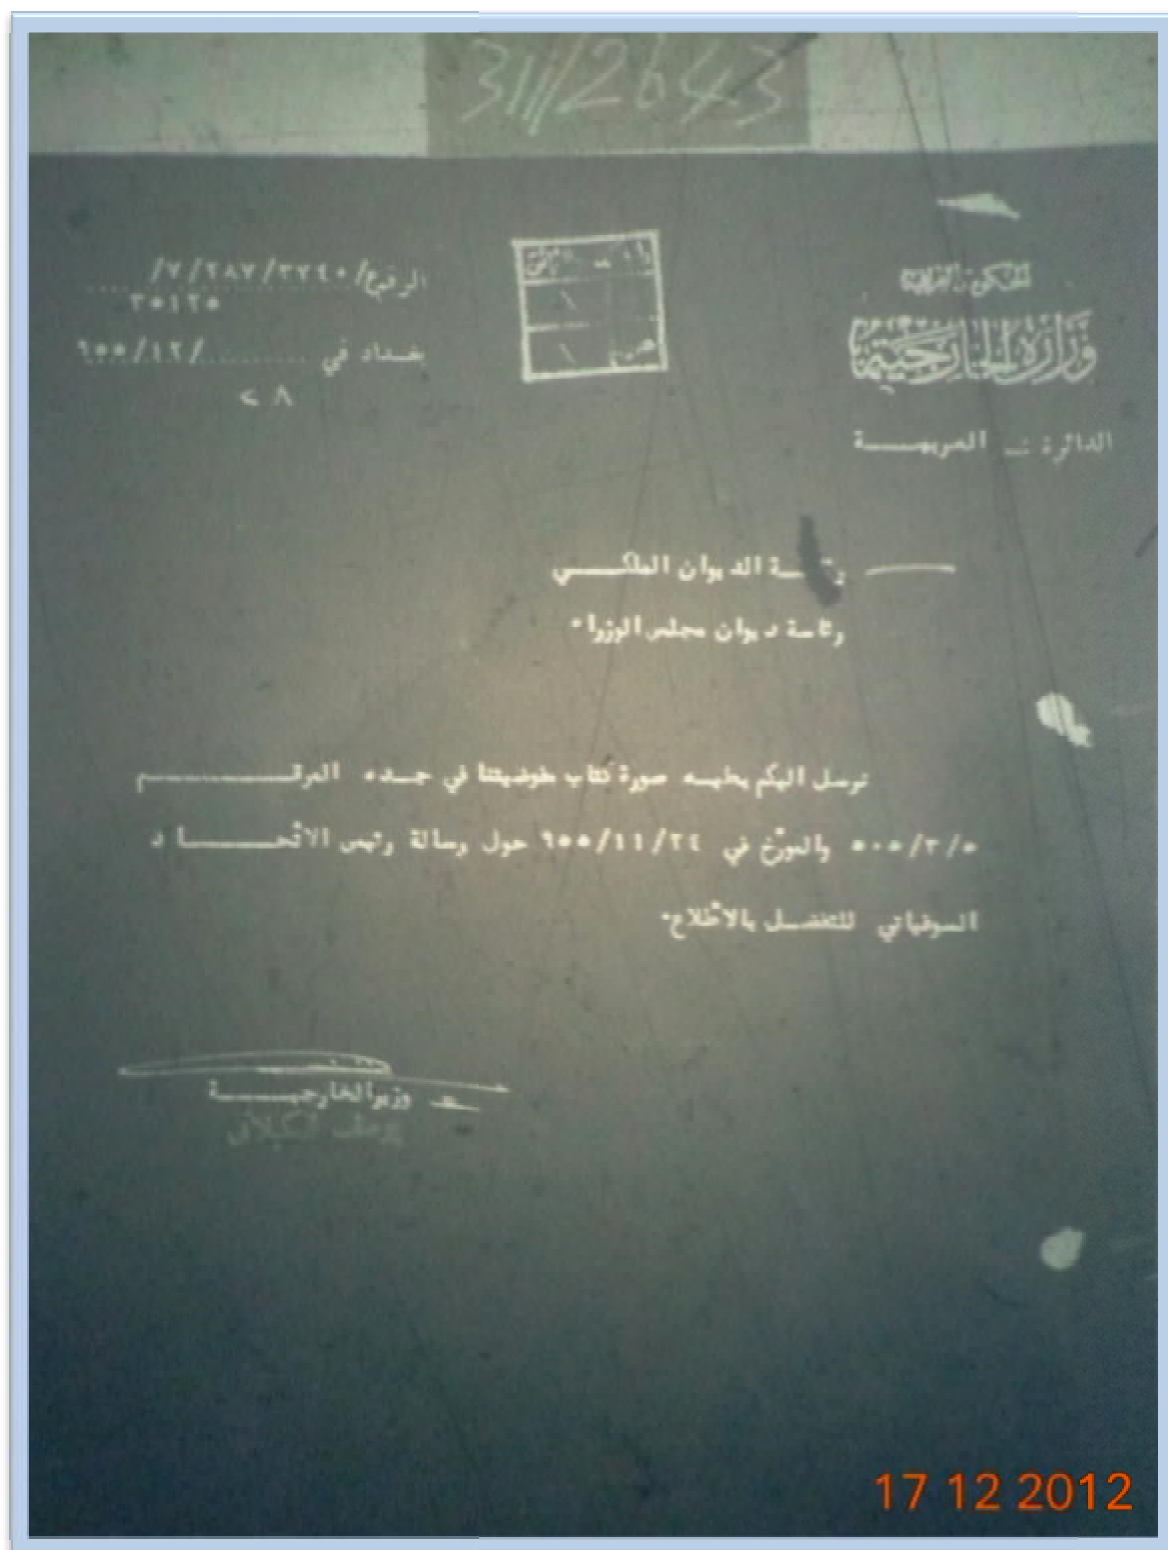 31//2643
الحكومة العراقية
وزارة الخارجية
الدائرة :ـ العربيـــة
الرقم ع/٣٢٤٠/٢٨٧/٧/
٣٥١٢٥
بغداد في ........../١٢/٩٥٥
٢٨
ـــة الديوان الملكـــي
رئاسة ديوان مجلس الوزراء٠
نرسل اليكم بطيه صورة كتاب مفوضيتنا في جـده المرقـــــم
٥/٣/٥٠٥ والمؤرخ في ٩٥٥/١١/٢٤ حول رسالة رئيس الاتحـــاد
السوفياتي للتفضـل بالاطلاع٠
وزير الخارجيـــة